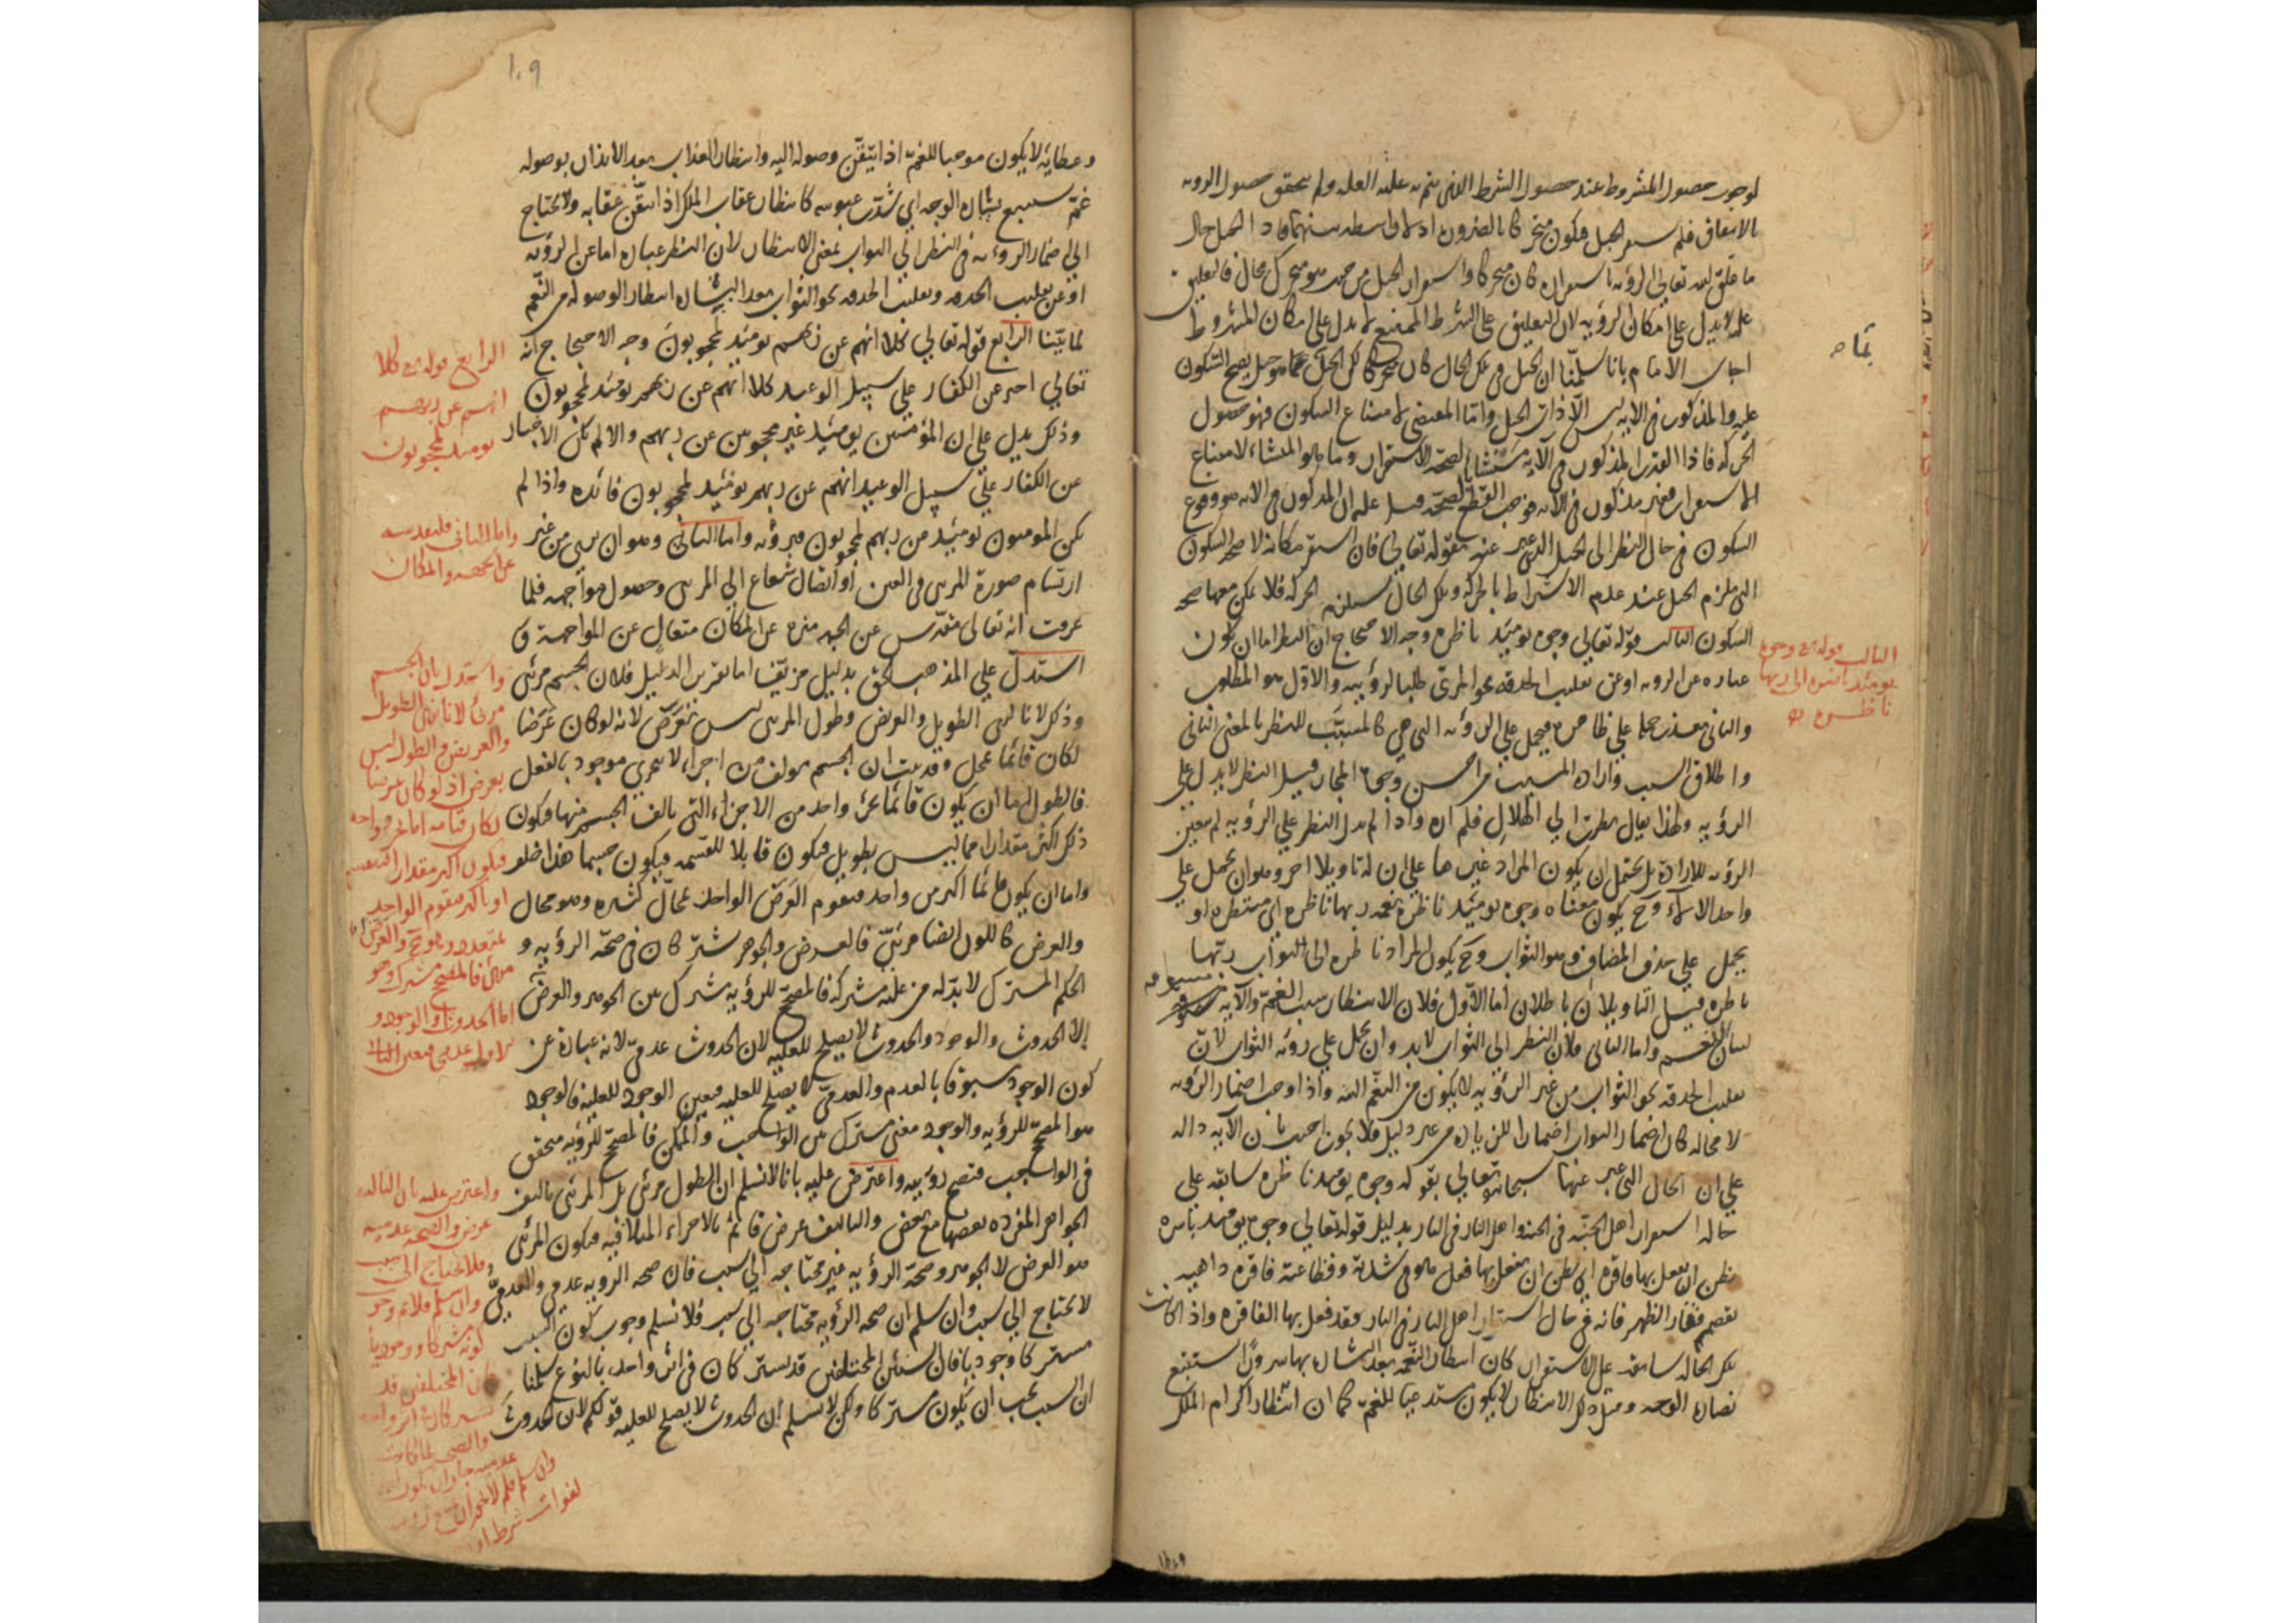 لوجوب حصول المشروط عند حصول الشرط الذى يتم به علية العلة ولم يتحقق حصول الرويه
بالاتفاق فلم يستقر الجبل فيكون متحركا بالضرورة اذ لا واسطه بينهما فاذا الجبل حال
ما علق الله تعالى الرؤيه باستقراره كان متحركا واستقرار الجبل من حيث هو متحرك محال فالتعليق
عليه لا يدل على امكان الرؤيه لان التعليق على الشرط الممتنع لا يدل على امكان المشروط
اجاب الامام بانا سلمنا ان الجبل فى تلك الحال كان متحركا لكن الجبل بما هو جبل يصح السكون
عليه والمذكور فى الايه ليس الا ذات الجبل واما المقتضى لامتناع السكون فهو حصول
الحركه فاذا القدر المذكور فى الآية منشأ لصحة الاستقرار وما هو المنشاء لامتناع
الاستقرار فغير مذكور فى الايه فوجب القطع بالصحة قيل عليه ان المذكور فى الايه هو وقوع
السكون فى حال النظر الى الجبل الذى عبر عنه بقوله تعالى فان استقر مكانه لا صحه السكون
التى تلزم الجبل عند عدم الاشتراط بالحركه وتلك الحال يستلزم الحركه فلا يمكن معها صحه
السكون الثالث قوله تعالى وجوه يومئذ ناظره وجه الاحتجاج ان النظر اما ان يكون
عباره عن الرويه او عن تقليب الحدقه نحو المرئى طلبا لرؤيته والاول هو المطلوب
والثانى تعذر حمله على ظاهره فيحمل على الرؤيه التى هى كالمسبب للنظر بالمعنى الثانى
واطلاق السبب واراده المسبب من احسن وجوه المجاز قيل النظر لا يدل على
الرؤيه ولهذا يقال نظرت الى الهلال فلم اره واذا لم يدل النظر على الرؤيه لم يتعين
الرؤيه للارادة بل يحتمل ان يكون المراد غيرها على ان له تاويلا اخر وهو ان يحمل على
واحد الآلاء وح يكون معناه وجوه يومئذ ناظرة نعمه ربها ناظره اى منتظره او
يحمل على حذف المضاف وهو الثواب وح يكون المراد ناظره الى ثواب ربها
ناظره قيل التاويلان باطلان اما الاول فلان الانتظار سبب الغم والآيه مسوقه
لبيان النعم واما الثانى فلان النظر الى الثواب لابد وان يحمل على رؤيه الثواب لان
تقليب الحدقه نحو الثواب من غير الرؤيه لا يكون من النعم البته واذا وجب اضمار الرؤيه
لا محاله كان اضمار الثواب اضمارا للزياده من غير دليل فلا يجوز اجيب بان الآيه داله
على ان الحال التى عبر عنها سبحانه وتعالى بقوله وجوه يومئذ ناظره سابقه على
حاله استقرار اهل الجنة فى الجنه واهل النار فى النار بدليل قوله تعالى وجوه يومئذ باسره
تظن ان يفعل بها فاقره اى تظن ان يفعل بها فعل هو فى شدته وفظاعته فاقره داهيه
تقصم فقار الظهر فانه فى حال استقرار اهل النار فى النار فقد فعل بها الفاقره واذا كانت
تلك الحاله سابقه على الاستقرار كان انتظار النعمه بعد البشاره بها سرورا يستتبع
نضاره الوجه ومثل ذلك الانتظار لا يكون مستدعيا للغم كما ان انتظار اكرام الملك
تمام
الثالث قوله تع وجوه
يومئذ ناضره الى ربها
ناظره
١٠٩
وعطائه لا يكون موجبا للغم اذا تيقن وصوله اليه وانتظار العذاب بعد الانذار بوصوله
غم يستتبع بشاره الوجه اى شدة عبوسه كانتظار عقاب الملك اذا تيقن عقابه ولا يحتاج
الى اضمار الرؤيه فى النظر الى الثواب بمعنى الانتظار لان النظر عباره اما عن الرؤيه
او عن تقليب الحدقه وتقليب الحدقه نحو الثواب بعد البشاره انتظار الوصوله من النعم
لما بينا الرابع قوله تعالى كلا انهم عن ربهم يومئذ لمحجوبون وجه الاحتجاج انه
تعالى اخبر عن الكفار على سبيل الوعيد كلا انهم عن ربهم يومئذ لمحجوبون
وذلك يدل على ان المؤمنين يومئذ غير محجوبين عن ربهم والا لم يكن الاخبار
عن الكفار على سبيل الوعيد انهم عن ربهم يومئذ لمحجوبون فائده واذا لم
يكن المومنون يومئذ من ربهم لمحجوبون فيرونه واما الثانى وهو ان يرى من غير
ارتسام صورة للمرئى فى العين او اتصال شعاع الى المرئى وحصول مواجهه فلما
عرفت انه تعالى متقدس عن الجهه منزه عن المكان متعال عن المواجهة و
استدل على المذهب الحق بدليل مزيف اما تقرير الدليل فلان الجسم مرئى
وذلك لانا نرى الطويل والعريض وطول المرئى ليس بعرض لانه لو كان عرضا
لكان قائما بمحل وقد ثبت ان الجسم مولف من اجزاء لا تتجزى موجود بالفعل
فالطول اما ان يكون قائما بجزء واحد من الاجزاء التى تالف الجسم منها فيكون
ذلك اكثر مقدارا مما ليس بطويل فيكون قابلا للقسمه فيكون جسما هذا خلف
واما ان يكون قائما اكثر من واحد فيقوم العرض الواحد بمحال كثيره وهو محال
والعرض كاللون ايضا مرئى فالعرض والجوهر مشتركان فى صحة الرؤيه و
الحكم المشترك لابد له من علة مشتركه فالمصحح للرؤيه مشترك بين الجوهر والعرض
الا الحدوث والوجود والحدوث لا يصلح للعليه لان الحدوث عدمى لانه عبارة عن
كون الوجود مسبوقا بالعدم والعدمى لا يصلح للعليه فتعين الوجود للعليه فالوجود
هو المصحح للرؤيه والوجود معنى مشترك بين الواجب والممكن فالمصحح للرؤيه متحقق
فى الواجب فتصح رؤيته واعترض عليه بانا لا نسلم ان الطول مرئى بل المرئى تاليف
الجواهر المفرده بعضها مع بعض والتاليف عرض قائم بالاجزاء المتلاقيه فيكون المرئى
هو العرض لا الجوهر وصحة الرؤيه غير محتاجه الى سبب فان صحه الرويه عدمى والعدمى
لا يحتاج الى سبب وان سلم ان صحه الرؤيه محتاجه الى سبب فلا نسلم وجوب كون السبب
مشتركا وجوديا فان الشيئين المختلفين قد يشتركان فى اثر واحد بالنوع سلمنا
ان السبب يجب ان يكون مشتركا ولكن لا نسلم ان الحدوث لا يصلح للعليه قولكم لان الحدوث
الرابع قوله تع كلا
انهم عن ربهم
يومئذ لمحجوبون
واما الثانى فلتقدسه
عن الجهه والمكان
واستدل بان الجسم
مرئى لانا نرى الطويل
والعريض والطول ليس
بعرض اذ لو كان عرضا
لكان قيامه اما بجزء واحد
فيكون اكبر مقدارا فينقسم
او باكثر فيقوم الواحد
بمتعدد وهو مح والعرض
مرئى فالمصحح مشترك وهو
اما الحدوث والوجود و
الاول عدمى فتعين الثانى
واعترض عليه بان التالف
عرض والصحه عدميه
فلا يحتاج الى سبب
وان سلم فلا نم وجوب
كونه مشتركا ووجوديا
فان المختلفين قد
يشتركان فى اثر واحد
والصحه لما كانت
عدميه جاز ان يكون
وان سلم فلم لا يجوز ان
لفوات شرط او